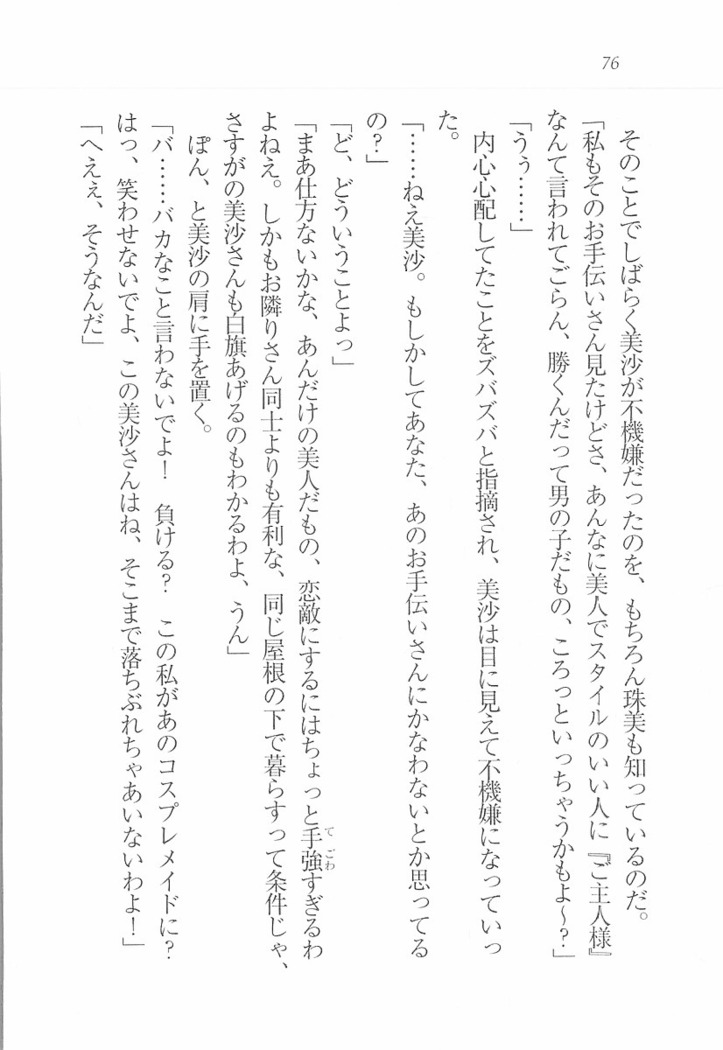 76
そのことでしばらく美沙が不機嫌だったのを、もちろん珠美も知っているのだ。
「私もそのお手伝いさん見たけどさ、あんなに美人でスタイルのいい人に『ご主人様』
なんて言われてごらん、勝くんだって男の子だもの、ころっといっちゃうかもよ〜?」
「うぅ……」
内心心配してたことをズバズバと指摘され、美沙は目に見えて不機嫌になっていっ
た。
「……ねえ美沙。もしかしてあなた、あのお手伝いさんにかなわないとか思ってる
の?」
「ど、どういうことよっ」
「まあ仕方ないかな、あんだけの美人だもの、恋敵にするにはちょっと手強すぎるわ
よねえ。しかもお隣りさん同士よりも有利な、同じ屋根の下で暮らすって条件じゃ、
さすがの美沙さんも白旗あげるのもわかるわよ、うん」
ぽん、と美沙の肩に手を置く。
「バ……バカなこと言わないでよ! 負ける? この私があのコスプレメイドに?
はっ、笑わせないでよ、この美沙さんはね、そこまで落ちぶれちゃあいないわよ!」
「へえぇ、そうなんだ」